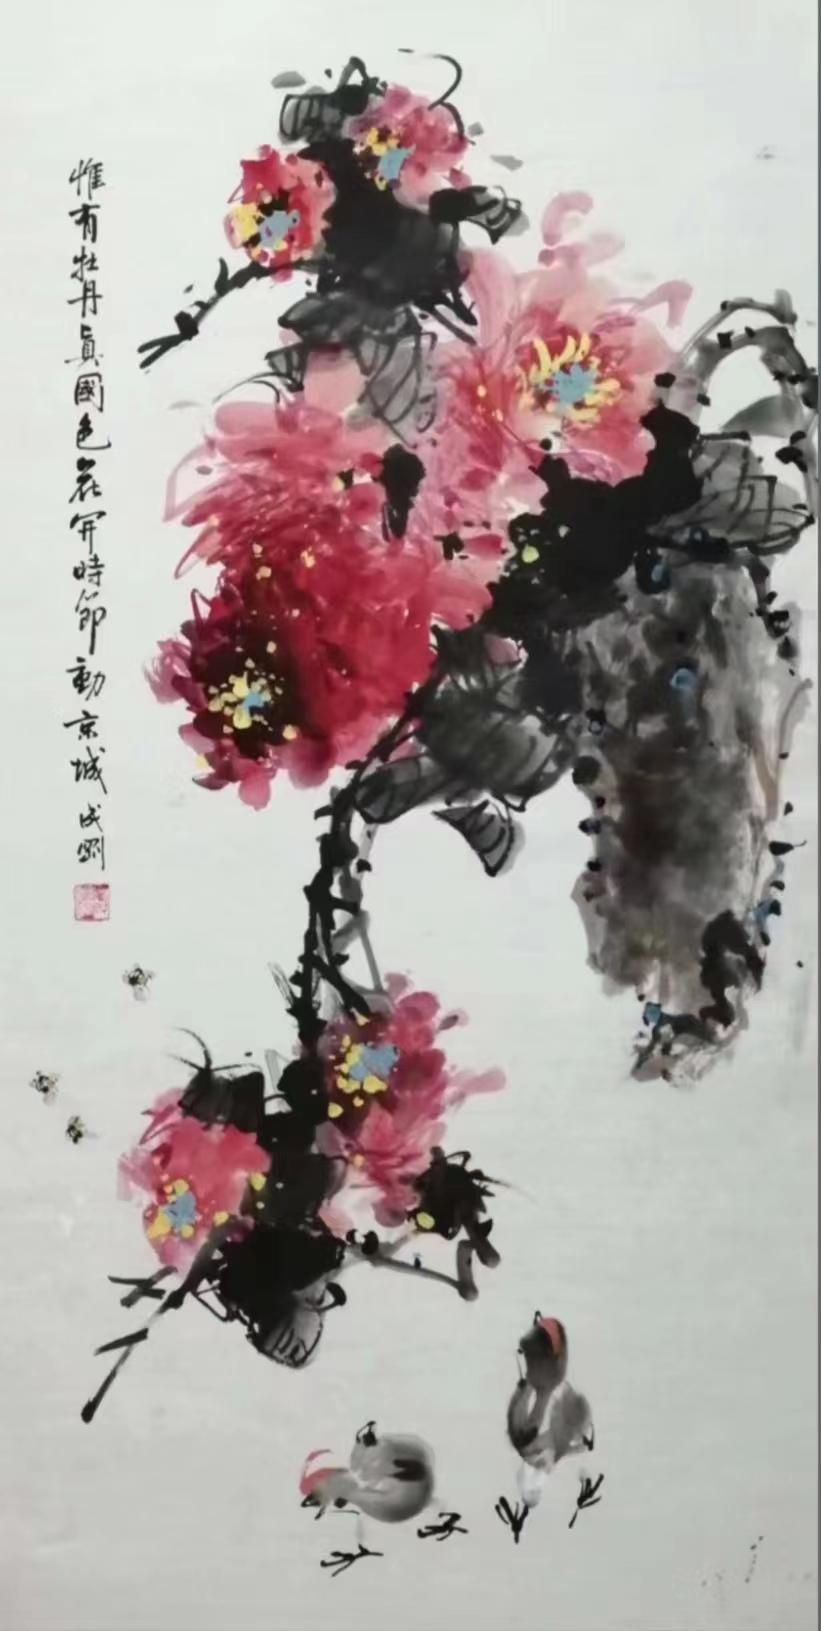 惟有牡丹真國色花開時節動京城成剛